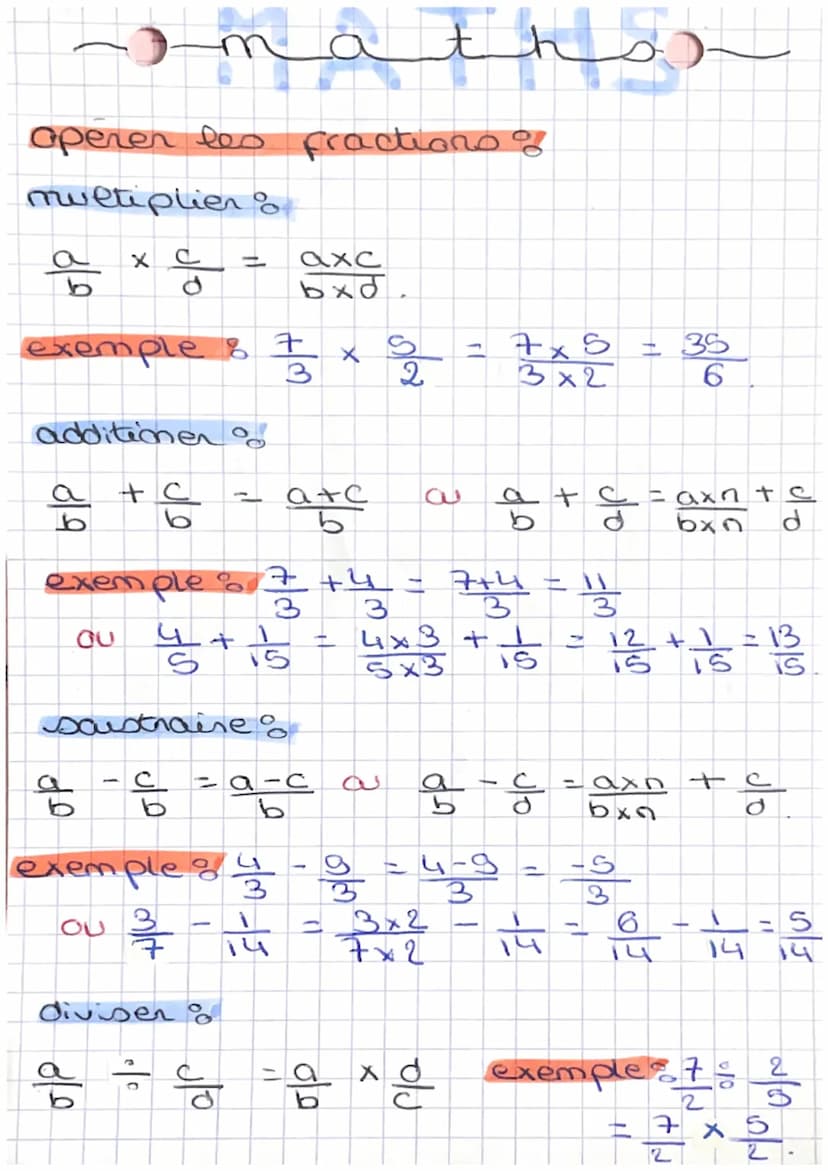 MATHS
maths
opérer les fractions :
multiplier :
a/b × c/d = a×c/b×d.
exemple : 7/3 × 5/2 = 7×5/3×2 = 35/6.
additioner :
a/b + c/b = a+c/b ou a/b + c/d = a×n/b×n + c/d
exemple : 7/3 + 4/3 = 7+4/3 = 11/3
ou 4/5 + 1/15 = 4×3/5×3 + 1/15 = 12/15 + 1/15 = 13/15.
soustraire :
a/b - c/b = a-c/b ou a/b - c/d = a×n/b×n + c/d.
exemple : 4/3 - 9/3 = 4-9/3 = -5/3
ou 3/7 - 1/14 = 3×2/7×2 - 1/14 = 6/14 - 1/14 = 5/14
diviser :
a/b ÷ c/d = a/b × d/c exemple : 7/2 ÷ 2/5
= 7/2 × 5/2.